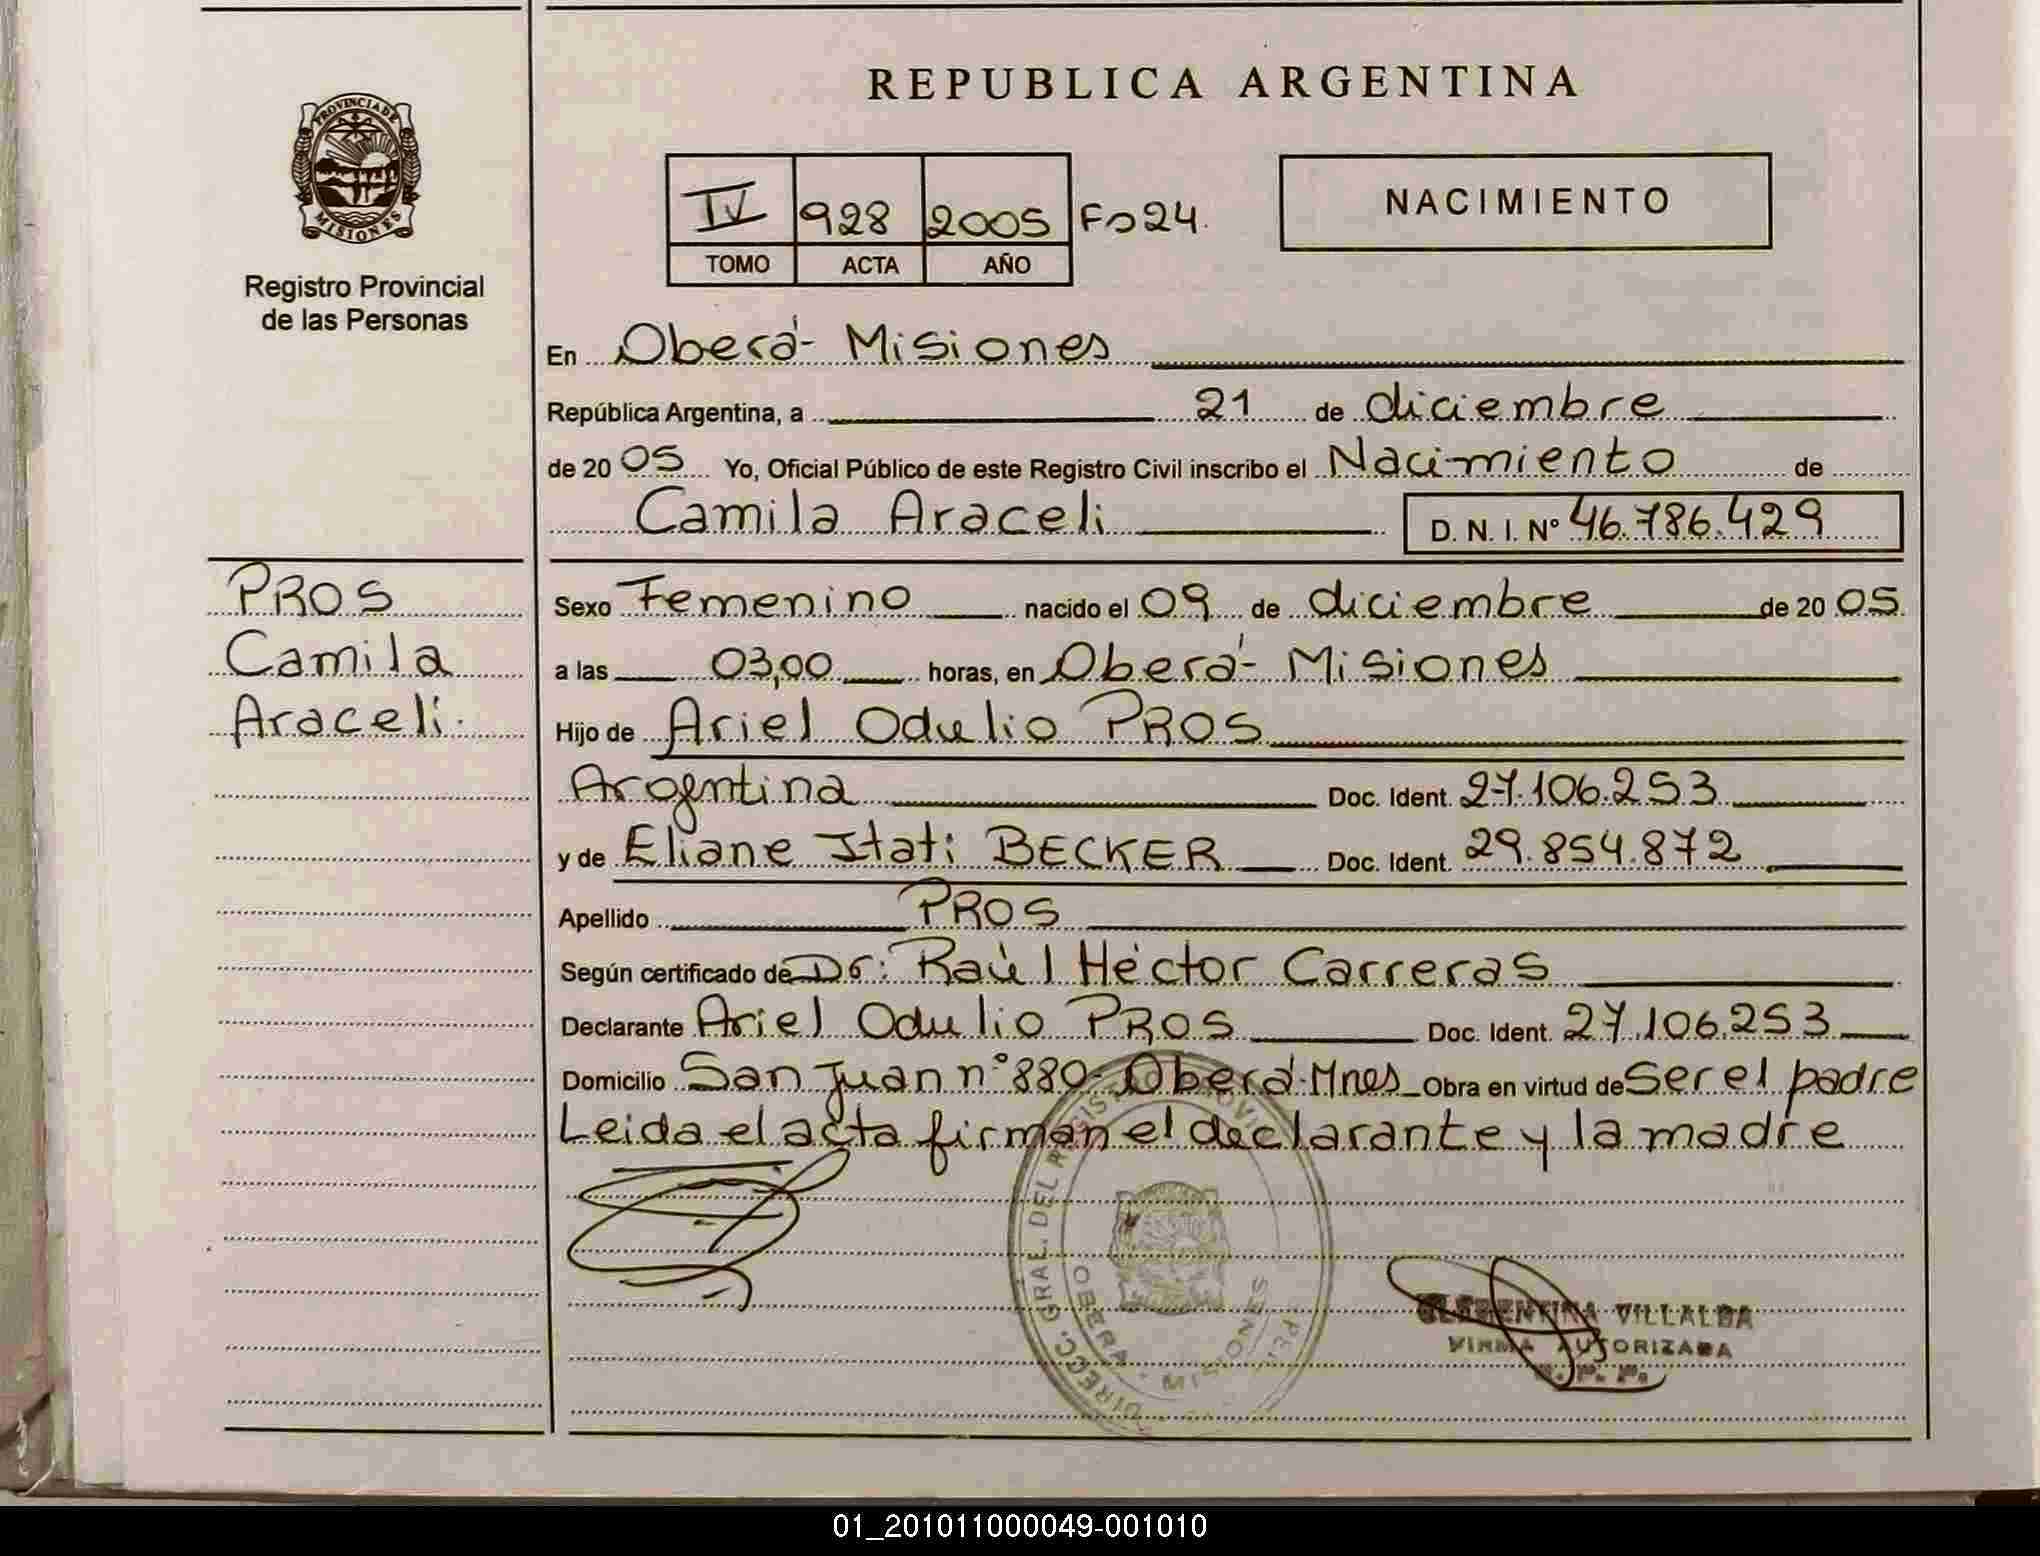 REPUBLICA ARGENTINA
PROVINCIA DE
MISIONES
Registro Provincial
de las Personas
IV 928 2005 Fo 24.
TOMO ACTA AÑO
NACIMIENTO
En Oberá - Misiones
República Argentina, a 21 de diciembre
de 20 05 Yo, Oficial Público de este Registro Civil inscribo el Nacimiento de
Camila Araceli D. N. I. Nº 46.786.429
PROS
Camila
Araceli.
Sexo Femenino nacido el 09 de diciembre de 20 05
a las 03,00 horas, en Oberá - Misiones
Hijo de Ariel Odulio PROS
Argentina Doc. Ident. 27.106.253
y de Eliane Itati BECKER Doc. Ident. 29.854.872
Apellido PROS
Según certificado de Dr: Raúl Héctor Carreras
Declarante Ariel Odulio PROS Doc. Ident. 27.106.253
Domicilio San Juan nº 880 - Oberá - Mnes Obra en virtud de Ser el padre
Leida el acta firman el declarante y la madre
DIRECC. GRAL. DEL REGISTRO
OBERA - MISIONES
VILLALBA
FIRMA AUTORIZADA
01_201011000049-001010